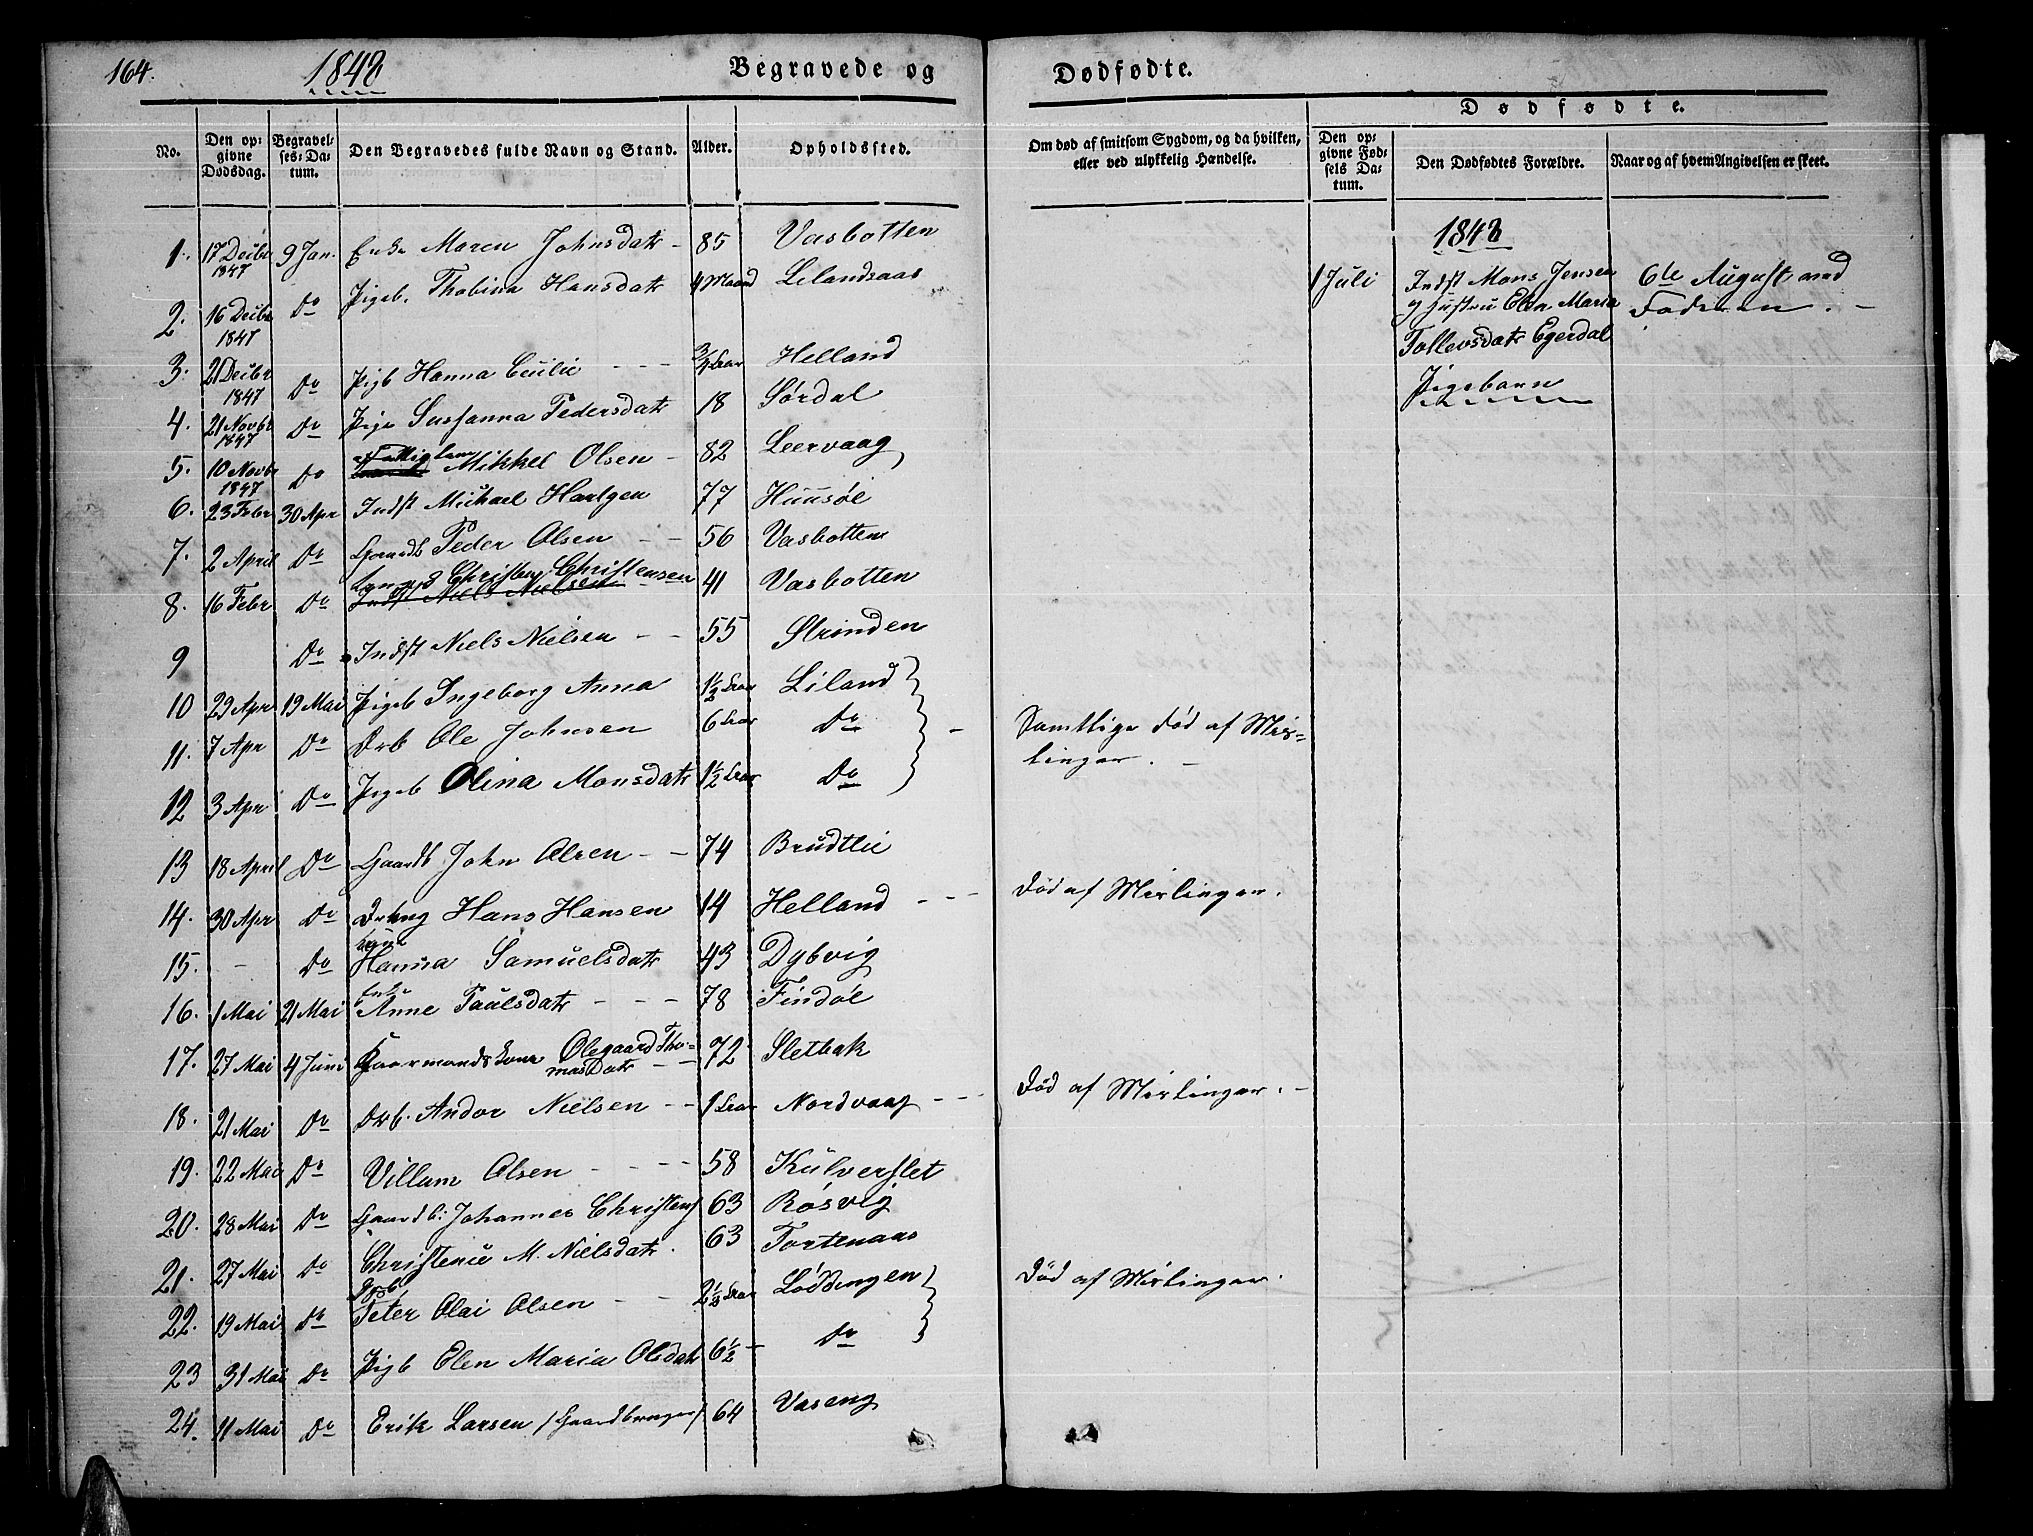 164.
1848
Begravede og
Dødfødte.
No.
Den op-
givne
Dødsdag.
Begravel-
ses-Da-
tum.
Den Begravedes fulde Navn og Stand.
Alder.
Opholdssted.
Om død af smitsom Sygdom, og da hvilken,
eller ved ulykkelig Hændelse.
Dødfødte.
Den op-
givne Fød-
sels Da-
tum.
Den Dødfødtes Forældre.
Naar og af hvem Angivelsen er skeet.
1. 17 Decbr 1847 9 Jan. Enke Maren Johnsdatr 85 Vasbotten
2. 16 Decbr 1847 Do Pigeb. Thobina Hansdatr 4 Maand Lilandsaas
3. 21 Decbr 1847 Do Pigb Hanna Cecilie 3/4 Aar Helland
4. 21 Novbr 1847 Do Pige Susanna Pedersdatr 18 Sørdal
5. 10 Novbr 1847 Do Fattiglem Mikkel Olsen 82 Leervaag
6. 23 Febr 30 Apr Indst Michael Hartgen 77 Huusøe
7. 2 April Do Gaardb Peder Olsen 56 Vasbotten
8. 16 Febr Do Christen Christensen 41 Vasbotten
Indst Niels Nielsen
9 Do Indst Niels Nielsen 55 Strinden
10 29 Apr 19 Mai Pigeb Ingeborg Anna 1 1/2 Aar Liland
11. 7 Apr Do Drb Ole Johnsen 6 Aar Do Samtlige død af Mæs-
lingar.
12 3 Apr Do Pigeb Olina Monsdatr 1 1/2 Aar Do
13 18 April Do Gaardb John Olsen 74 Brudtlie
14. 30 Apr Do Dreng Hans Hansen 14 Helland Død af Mæslingar.
15. - Do Hanna Samuelsdatr 43 Dybvig
16. 1 Mai 21 Mai Enke Anne Paulsdatr 78 Findøl
17. 27 Mai 4 Juni Kaarmandskone Olegaard Tho-
masDatr 72 Sletbak
18. 21 Mai Do Drb. Andor Nielsen 1 Aar Nordvaag Død af Mæslingar.
19. 22 Mai Do Villum Olsen 58 Kulverslet
20. 28 Mai Do Gaardb: Johannes Christens 63 Røsvig
21. 27 Mai Do Christense M. Nielsdatr. 63 Tortenaas
22. 19 Mai Do Peter Olai Olsen 2 1/2 Aar Løddingen Død af Mæslingar.
23 31 Mai Do Pigb Elen Maria Olsdatr 6 1/2 Do
24. 11 Mai Do Erik Larsen /Gaardbruger/ 64 Vaseng
1848
1 Juli
Indst Mons Jensen
og Hustru Elen Maria
Tollevsdatr Egerdal
Pigebarn
6te August, ved
Faderen.